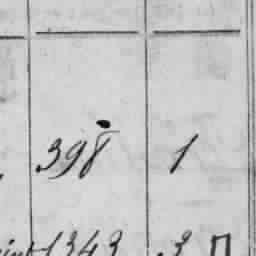 398 1
1343 3